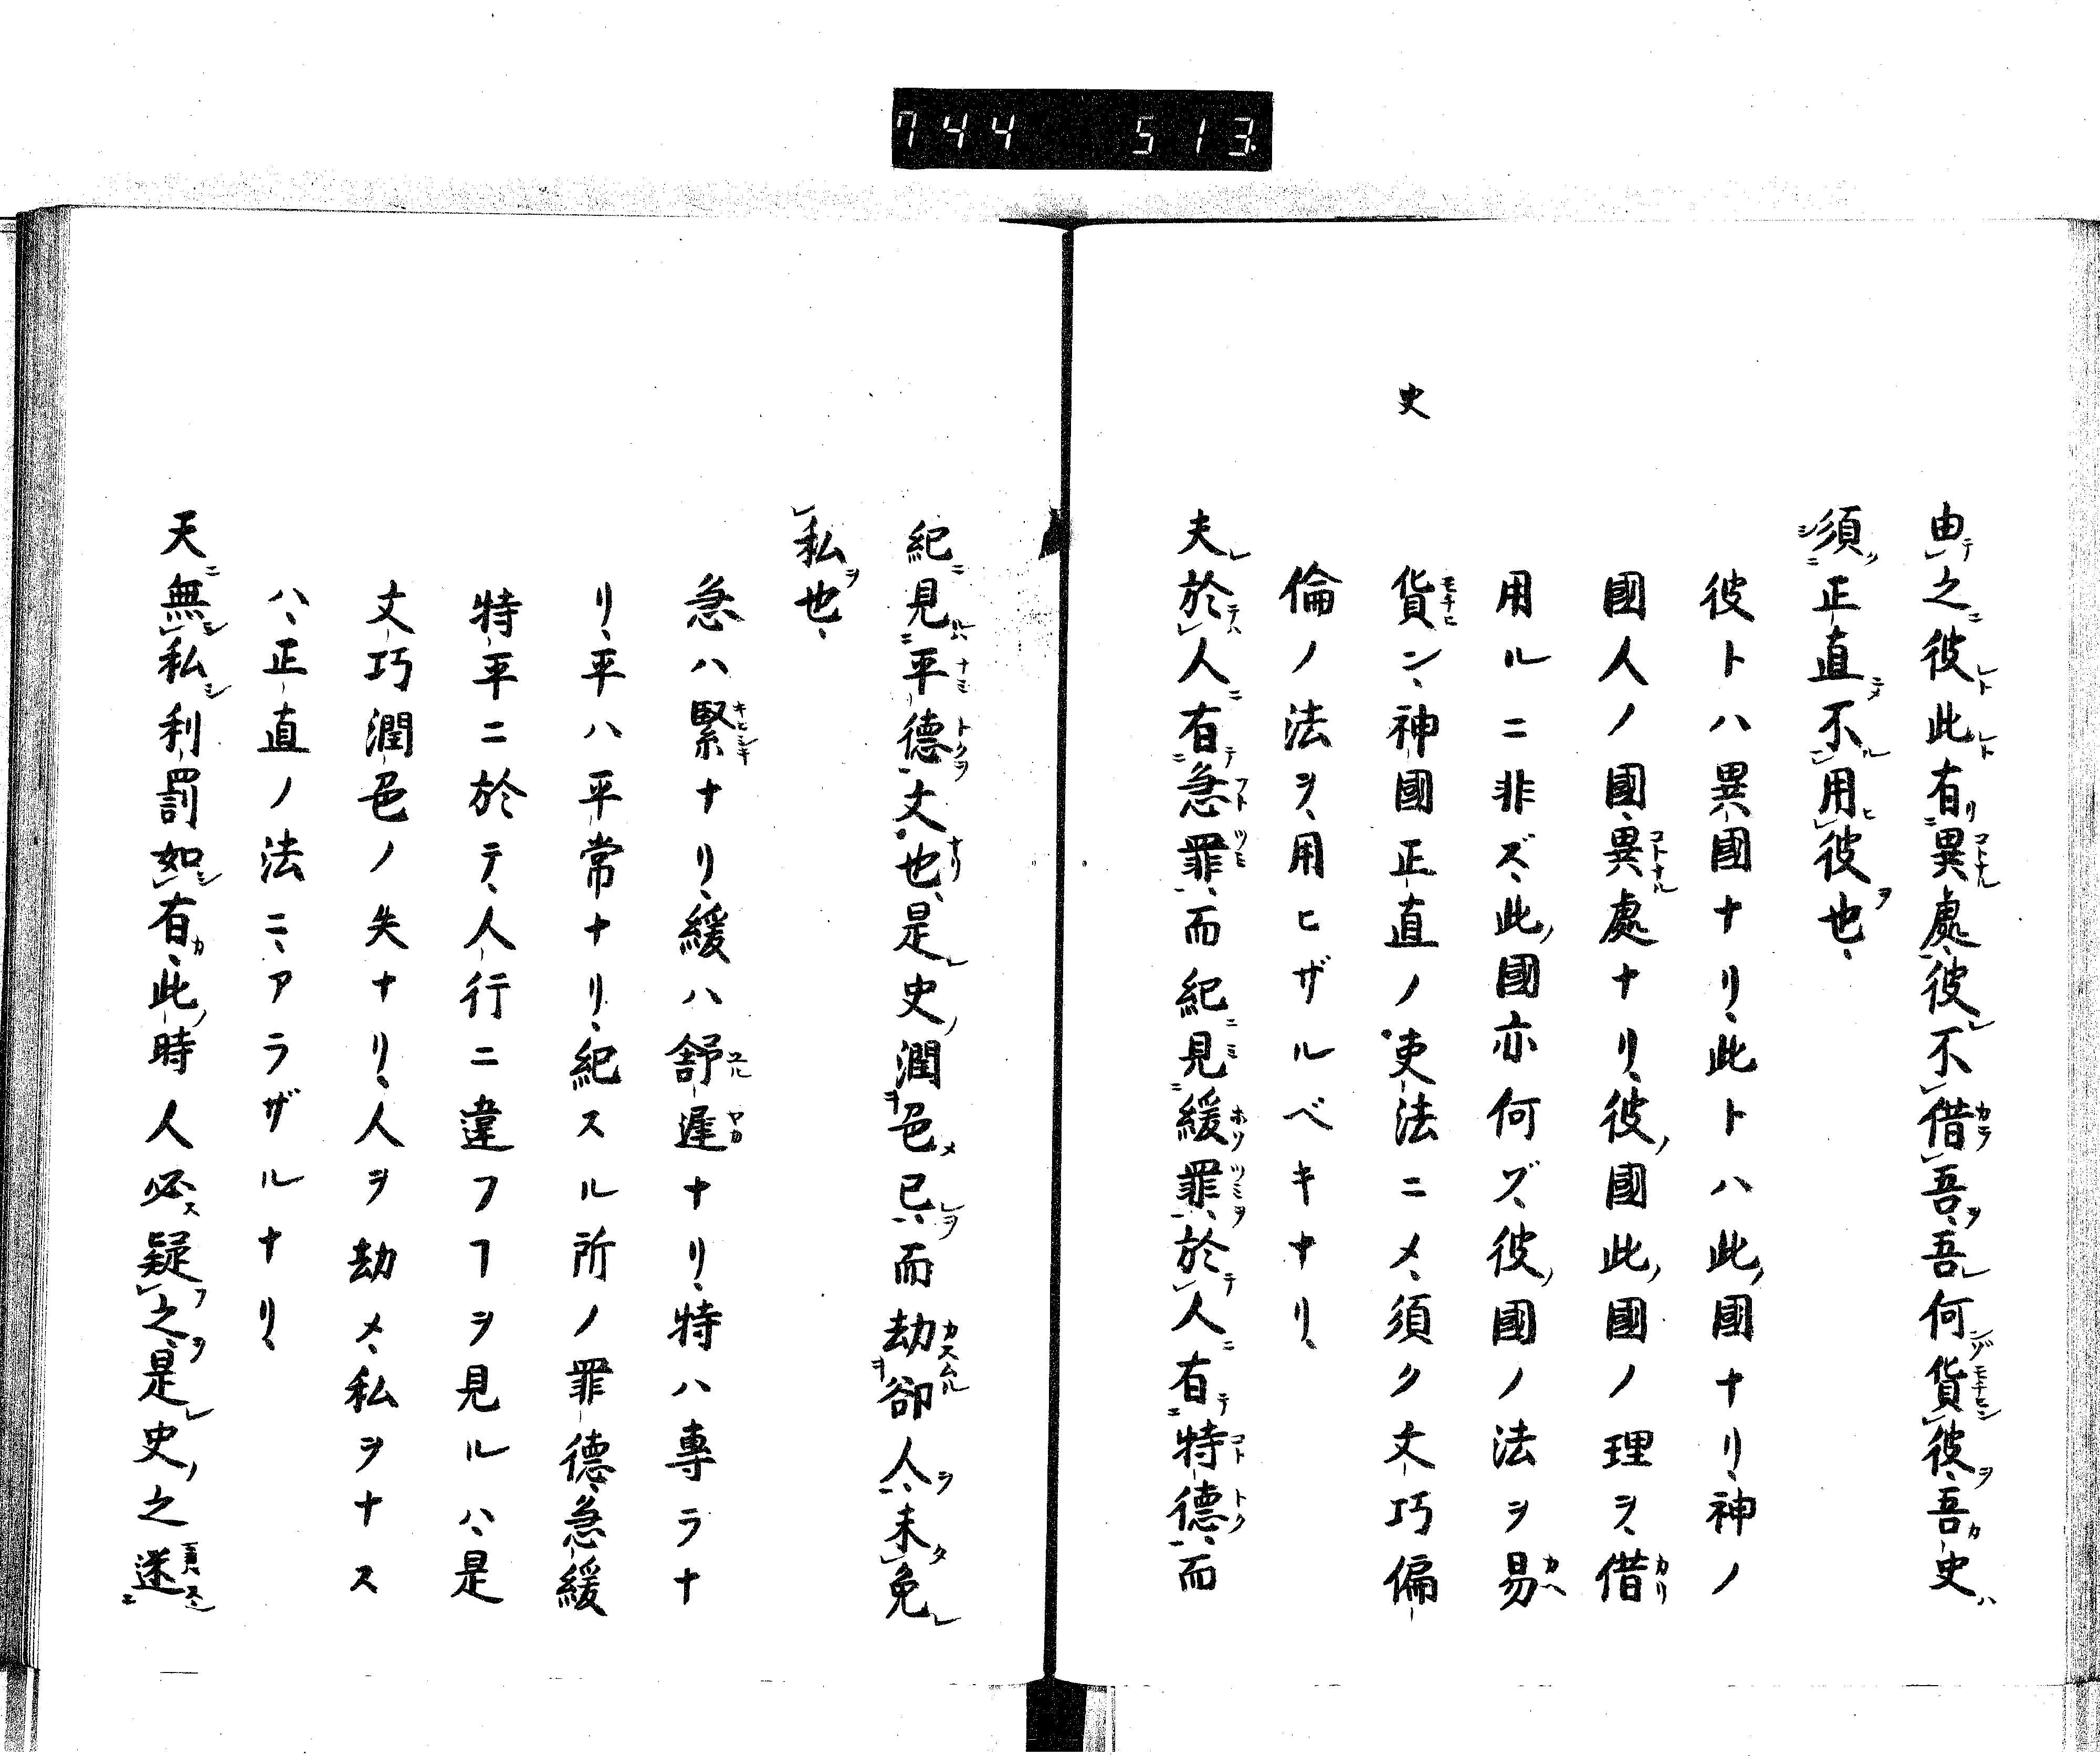 744 513
由之彼此有異處、彼不借吾、吾何貨彼、吾史
須正直不用彼也、
彼トハ異國ナリ、此トハ此ノ國ナリ、神ノ
國人ノ國、異處ナリ、彼ノ國此ノ國ノ理ヲ、借
用ルニ非ズ、此ノ國亦何ズ、彼ノ國ノ法ヲ易
史
貨ン、神國正直ノ吏法ニメ、須ク文巧偏
倫ノ法ヲ、用ヒザルベキナリ、
夫於人有急罪、而紀見緩罪、於人有特德、而
紀見平德文也、是史潤色已、而劫卻人、未免
私也、
急ハ緊ナリ、緩ハ舒遲ナリ、特ハ專ラナ
リ、平ハ平常ナリ、紀スル所ノ罪德、急緩
特平ニ於テ、人行ニ違フヿヲ見ルハ、是
文巧潤色ノ失ナリ、人ヲ劫メ、私ヲナス
ハ、正直ノ法ニ、アラザルナリ、
天無私利罰如有、此時人必疑之、是史ノ之迷